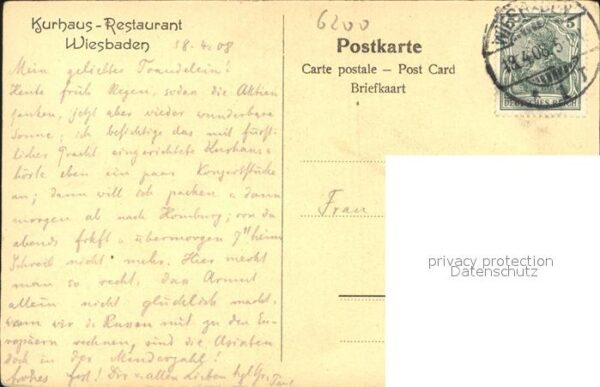 Kurhaus-Restaurant
Wiesbaden
18.4.08
Mein geliebtes Traudelein!
Heute früh Regen, sodan die Aktien
sanken, jetzt aber wieder wunderbare
Sonne; ich besichtige das mit fürst-
licher Pracht eingerichtete Kurhaus u
hörte eben ein paar Konzertstücke
an; dann will ich packen u dann
morgen ab nach Homburg; von da
abends frkft u übermorgen 7 heim
Schreib nicht mehr. Hier merkt
man so recht, dan Armut
allein nicht glücklich macht,
wenn wir die Russen mit zu den Eu-
ropäern rechnen, sind die Asiaten
doch in der Minderzahl!
Frohes Fest! Dir u allen Lieben hzl Gr.
6200
Postkarte
Carte postale – Post Card
Briefkaart
Frau
WIESBADEN
18.4.08
5
DEUTSCHES REICH
privacy protection
Datenschutz